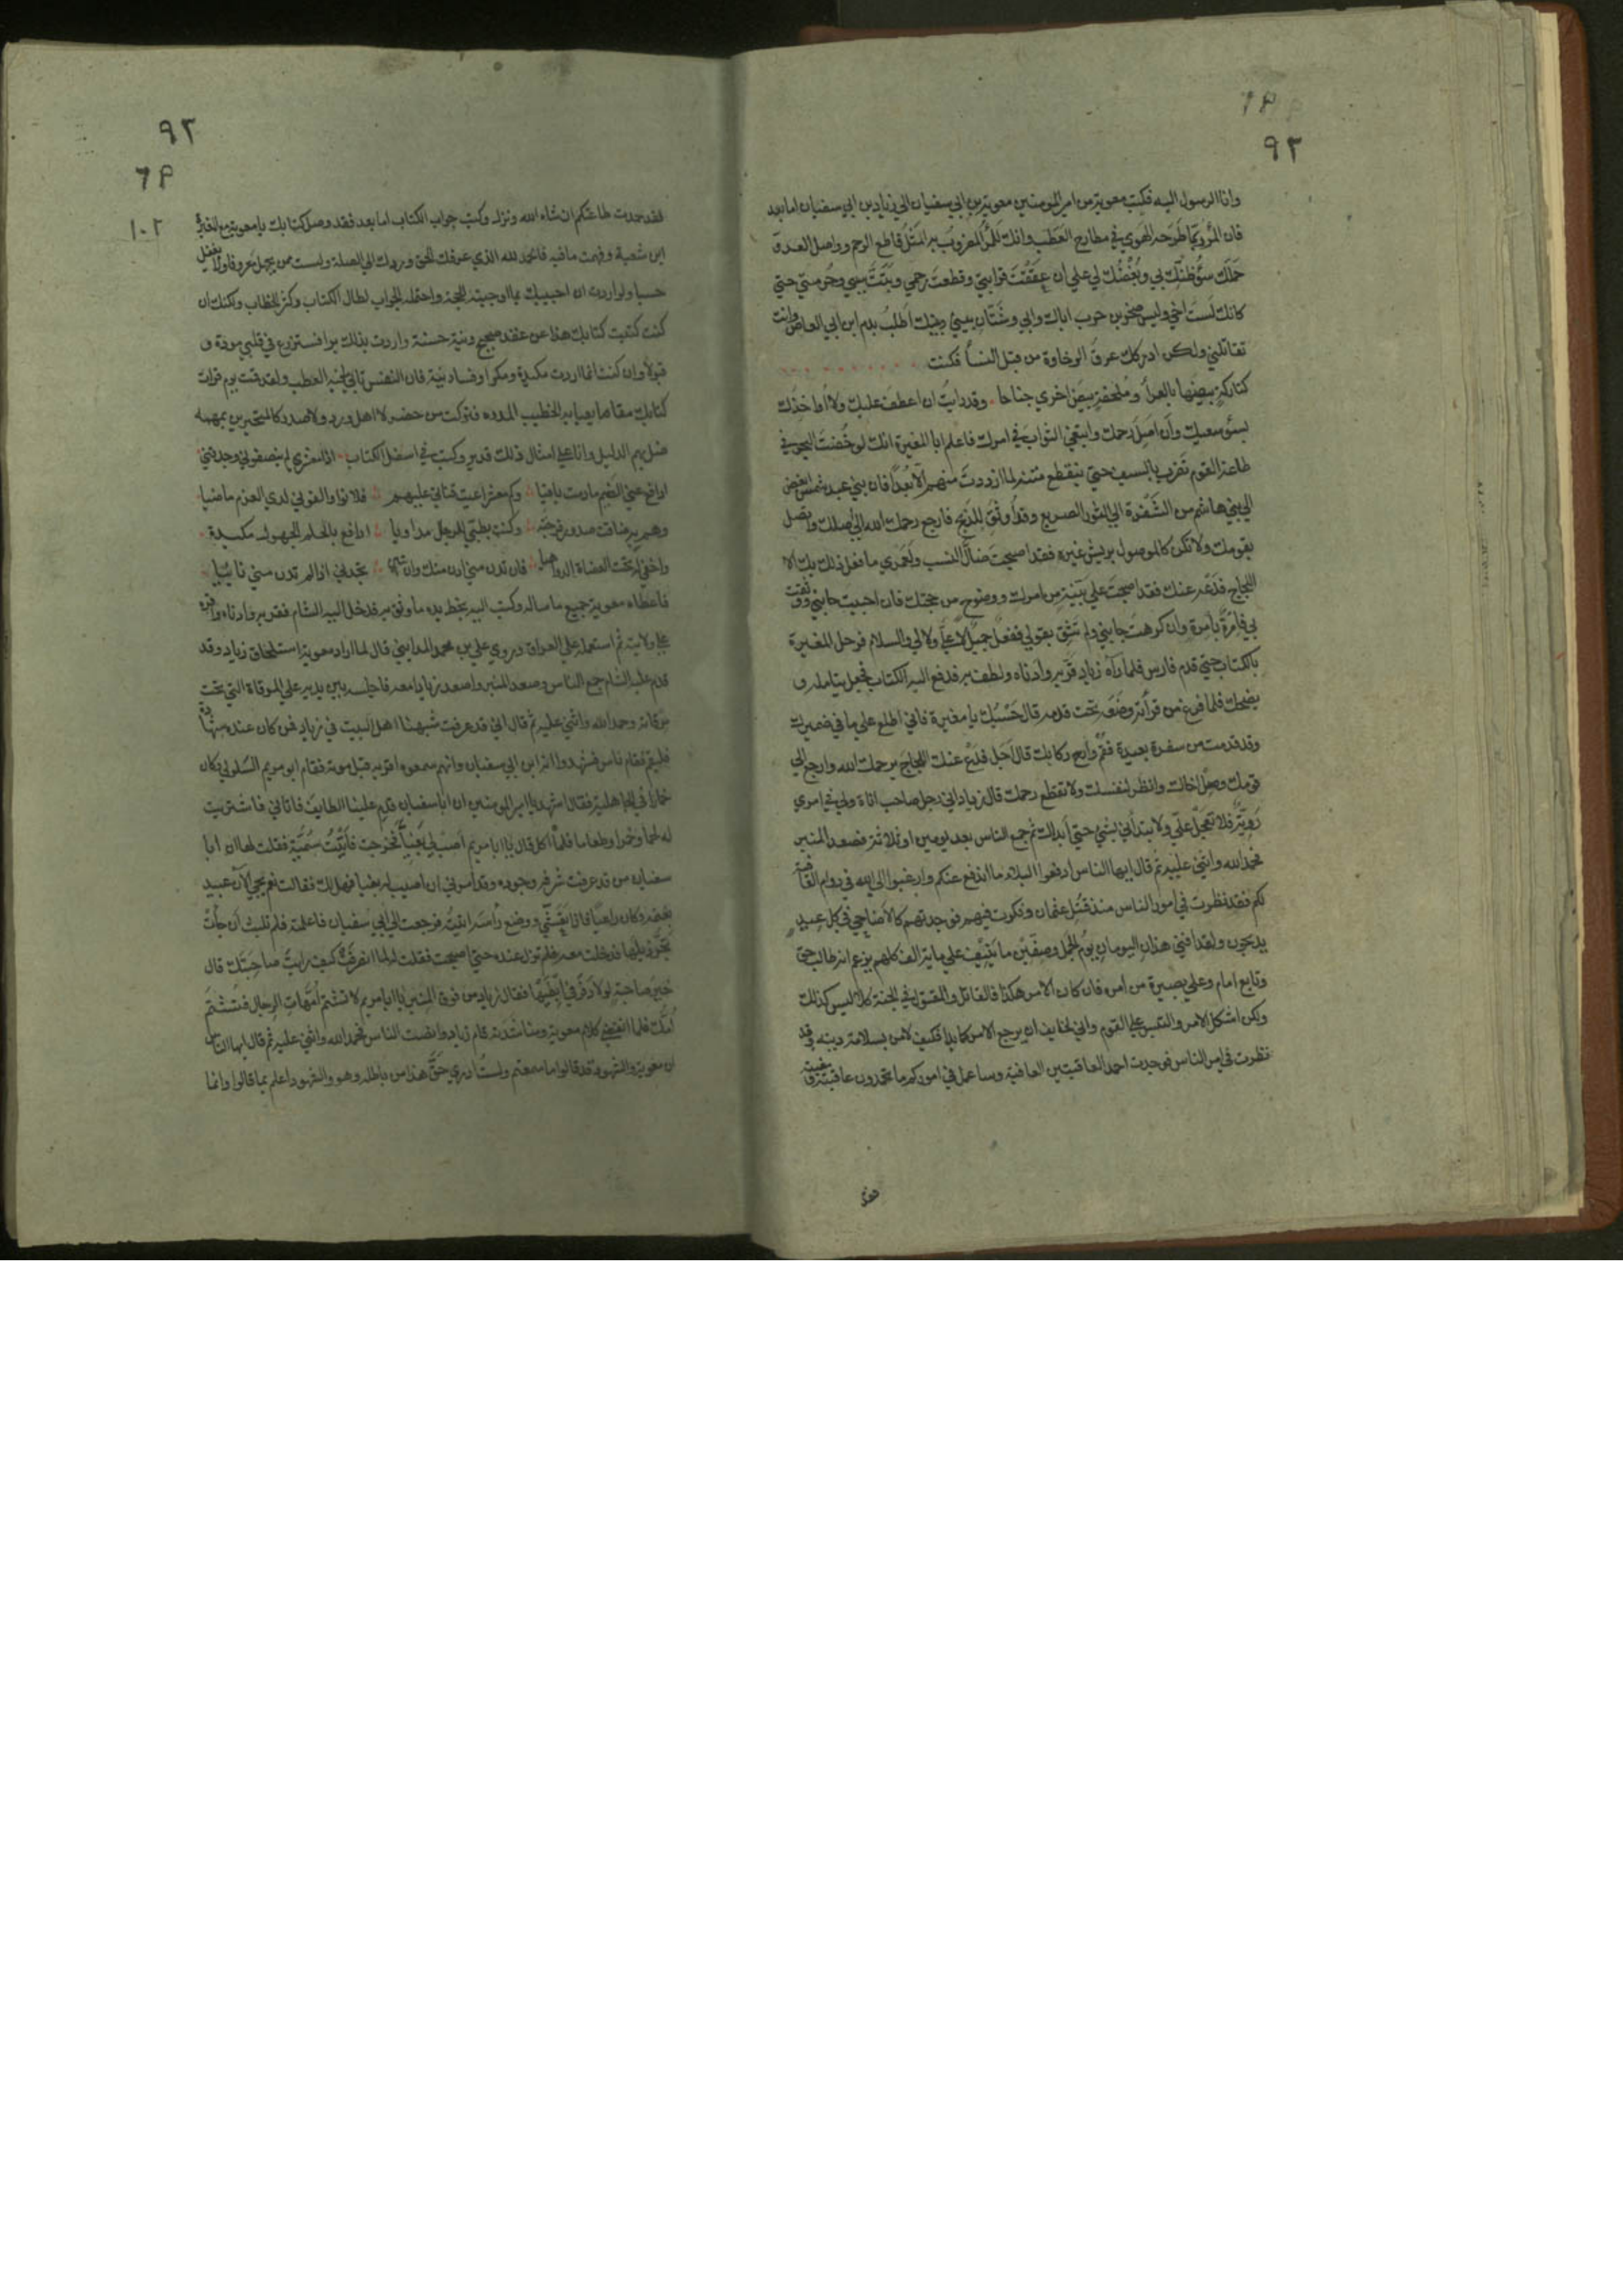 ٩٢
وانا الرسول اليه فكتب معوية من امير المومنين معوية بن ابي سفيان الي زياد بن ابي سفيان اما بعد
فان المرؤ ربما طرحه الهوي في مطارح العطب وانك للمرؤ المضروب به المثل قاطع الرحم وواصل العدو
حملك سؤ ظنك بي وبغضك لي علي ان عققت قرابتي وقطعت رحمي وبتت نسبي وحرمتي حتي
كانك لست اخي وليس صخر بن حرب اباك وابي وشتان بيني وبينك اطلب بدم ابن ابي العاص وانت
تقاتلني ولكن ادركك عرق الرخاوة من قبل النسأ فكنت
كتاركة بيضها بالعرأ وملحفة بيض اخري جناحا وقد رايت ان اعطف عليك ولا اواخذك
بسؤ سعيك وأن اصل رحمك وابتغي الثواب في امرك فاعلم ابا المغيرة انك لو خضت البحر في
طاعة القوم تضرب بالسيف حتي ينقطع متنه لما ازددت منهم الا بعدا فان بني عبد شمس ابغض
الي بني هاشم من الشفرة الي الثور الصريع وقد اوثق للذبح فارجع رحمك الله الي اصلك واتصل
بقومك ولا تكن كالموصول بريش غيره فقد اصبحت ضال النسب ولعمري ما فعل ذلك بك الا
اللجاج فدعه عنك فقد اصبحت علي بينة من امرك ووضوح من حجتك فان احببت جانبي ووثقت
بي فامرة بامرة وان كرهت جانبي ولم تثق بقولي ففعل جميل لا علي ولا لي والسلام فرحل المغيرة
بالكتاب حتي قدم فارس فلما رآه زياد قربه وادناه ولطف به فدفع اليه الكتاب فجعل يتامله و
يضحك فلما فرغ من قرأته وضعه تحت قدمه قال حسبك يا مغيرة فاني اطلع علي ما في ضميرك
وقد قدمت من سفرة بعيدة فقم وارح ركابك قال اجل فدع عنك اللجاج يرحمك الله وارجع الي
قومك وصل اخاك وانظر لنفسك ولا تقطع رحمك قال زياد اني رجل صاحب اناة ولي في امري
روية فلا تعجل علي ولا تبتدأني بشئ حتي أبدأك ثم جمع الناس بعد يومين او ثلاثة فصعد المنبر
فحمد الله واثني عليه ثم قال ايها الناس ادفعوا البلاء ما اندفع عنكم وارغبوا الي الله في دوام العافية
لكم فقد نظرت في امور الناس منذ قتل عثمان وفكرت فيهم فوجدتهم كالاضاحي في كل عيد
يذبحون ولقد افني هذان اليومان يوم الجمل وصفين ما ينيف علي ماية الف كلهم يزعم انه طالب حق
وتابع امام وعلي بصيرة من امره فان كان الامر هكذا فالقاتل والمقتول في الجنة كلا ليس كذلك
ولكن اشكل الامر والتبس علي القوم واني لخايف ان يرجع الامر كما بدا فكيف لامرئ بسلامة دينه وقد
نظرت في امر الناس فوجدت احمد العاقبتين العافية وساعمل في اموركم ما تحمدون عاقبته ومغبته
فقد
٩٢
١٠٢
فقد حمدت طاعتكم ان شاء الله ونزل وكتب جواب الكتاب اما بعد فقد وصل كتابك يا معوية مع المغيرة
ابن شعبة وفهمت ما فيه فالحمد لله الذي عرفك الحق وردك الي الصلة ولست ممن يجهل معروفا ولا يغفل
حسبا ولو اردت ان اجيبك بما اوجبته الحجة واحتمله الجواب لطال الكتاب وكثر الخطاب ولكنك ان
كنت كتبت كتابك هذا عن عقد صحيح ونية حسنة واردت بذلك برا فستزرع في قلبي مودة و
قبولا وان كنت انما اردت مكيدة ومكرا وفساد نية فان النفس تابي لجنبه العطب ولقد قمت يوم قرات
كتابك مقاما يعيا به الخطيب المدره فتركت من حضر لا اهل ورد ولا صدر كالمتحيرين بمهمه
ضل بهم الدليل وانا علي امثال ذلك قدير وكتب في اسفل الكتاب اذا معشري لم ينصفوني وجدتني
ادافع عني الضيم ما دمت باقيا وكم معشر اعيت قناتي عليهم فلانوا والفوني لدي العزم ماضيا
وهم به ضاقت صدور فرجته وكنت بطبي للرجل مداويا ادافع بالحلم الجهول مكيدة
واخفي له تحت العضاة الدواهيا فان تدن مني ادن منك وان تبن تجدني اذا لم تدن مني نائيا
فاعطاه معوية جميع ما ساله وكتب اليه بخط يده ما وثق به فدخل اليه الشام فقربه وادناه واقره
علي ولايته ثم استعمله علي العراق وروي علي بن محمد المدايني قال لما اراد معوية استلحاق زياد وقد
قدم عليه الشام جمع الناس وصعد المنبر واصعد زيادا معه فاجلسه بين يديه علي المرقاة التي تحت
مرقاته وحمد الله واثني عليه ثم قال اني قد عرفت شبهنا اهل البيت في زياد فمن كان عنده شهادة
فليقم فقام ناس فشهدوا انه ابن ابي سفيان وانهم سمعوه اقر به قبل موته فقام ابو مريم السلولي وكان
خمارا في الجاهلية فقال اشهد يا امير المومنين ان ابا سفيان قدم علينا الطايف فاتاني فاشتريت
له لحما وخمرا وطعاما فلما اكل قال يا ابا مريم اصب لي بغيا فخرجت فاتيت سمية فقلت لها ان ابا
سفيان من قد عرفت شرفه وجوده وقد امرني ان اصيب له بغيا فهل لك فقالت نعم يجي الآن عبيد
بغنمه وكان راعيا فاذا تعشي ووضع راسه اتيته فرجعت الي ابي سفيان فاعلمته فلم تلبث ان جات
تجر ذيلها فدخلت معه فلم تزل عنده حتي اصبحت فقلت له لما انصرفت كيف رايت صاحبتك قال
خير صاحبة لولا ذفر في ابطيها فقال زياد من فوق المنبر يا ابا مريم لا تشتم امهات الرجال فتشتم
امك فلما انقضي كلام معوية ومناشدته قام زياد وانصت الناس فحمد الله واثني عليه ثم قال ايها الناس
ان معوية والشهود قد قالوا ما سمعتم ولست ادري حق هذا من باطله وهو والشهود اعلم بما قالوا وانما